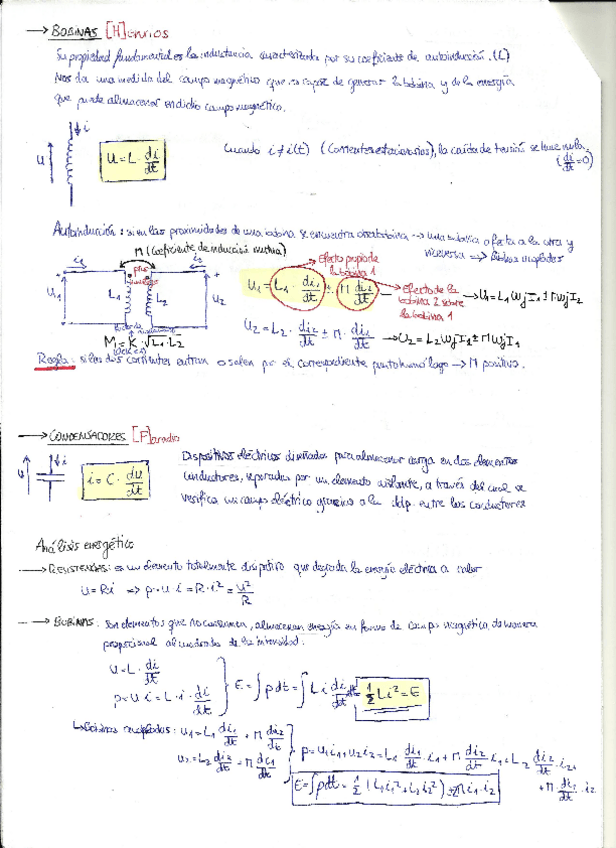 → BOBINAS [H]enrios
Su propiedad fundamental es la inductancia caracterizada por su coeficiente de autoinducción. (L)
Nos da una medida del campo magnético que es capaz de generar la bobina y de la energía
que puede almacenar en dicho campo magnético.
i
U
U = L · di/dt
Cuando i ≠ i(t) (corrientes estacionarias), la caída de tensión se hace nula.
(di/dt = 0)
Autoinducción: si en las proximidades de una bobina se encuentra otra bobina → una bobina afecta a la otra y
viceversa ⇒ Bobinas acopladas
M (Coeficiente de inducción mutua)
i1 i2
U1 L1 L2 U2
M = K · √L1·L2
Efecto propio de
la bobina 1
U1 = L1 · di1/dt ± M di2/dt → U1 = L1 ωj I1 ± M ωj I2
Efecto de la
bobina 2 sobre
la bobina 1
U2 = L2 · di2/dt ± M · di1/dt → U2 = L2 ωj I2 ± M ωj I1
Regla: si las dos corrientes entran o salen por el correspondiente punto homólogo → M positivo.
→ CONDENSADORES [F]aradio
U i
i = C · du/dt
Dispositivos eléctricos diseñados para almacenar carga en dos elementos
conductores, separados por un elemento aislante, a través del cual se
verifica un campo eléctrico gracias a la ddp. entre los conductores
Análisis energético
→ RESISTENCIAS: es un elemento totalmente disipativo que degrada la energía eléctrica a calor
U = Ri ⇒ p = u · i = R · i² = U²/R
→ BOBINAS: Son elementos que no consumen, almacenan energía en forma de campo magnético, de manera
proporcional al cuadrado de la intensidad.
U = L · di/dt
p = U · i = L · i · di/dt
E = ∫ p dt = ∫ L i di/dt dt = ½ L i² = E
↳ Bobinas acopladas: u1 = L1 di1/dt + M di2/dt
u2 = L2 di2/dt + M di1/dt
p = u1 i1 + u2 i2 = L1 di1/dt · i1 + M · di2/dt · i1 + L2 di2/dt · i2 +
+ M · di1/dt · i2
E = ∫ p dt = ½ (L1 i1² + L2 i2²) ± M i1 · i2